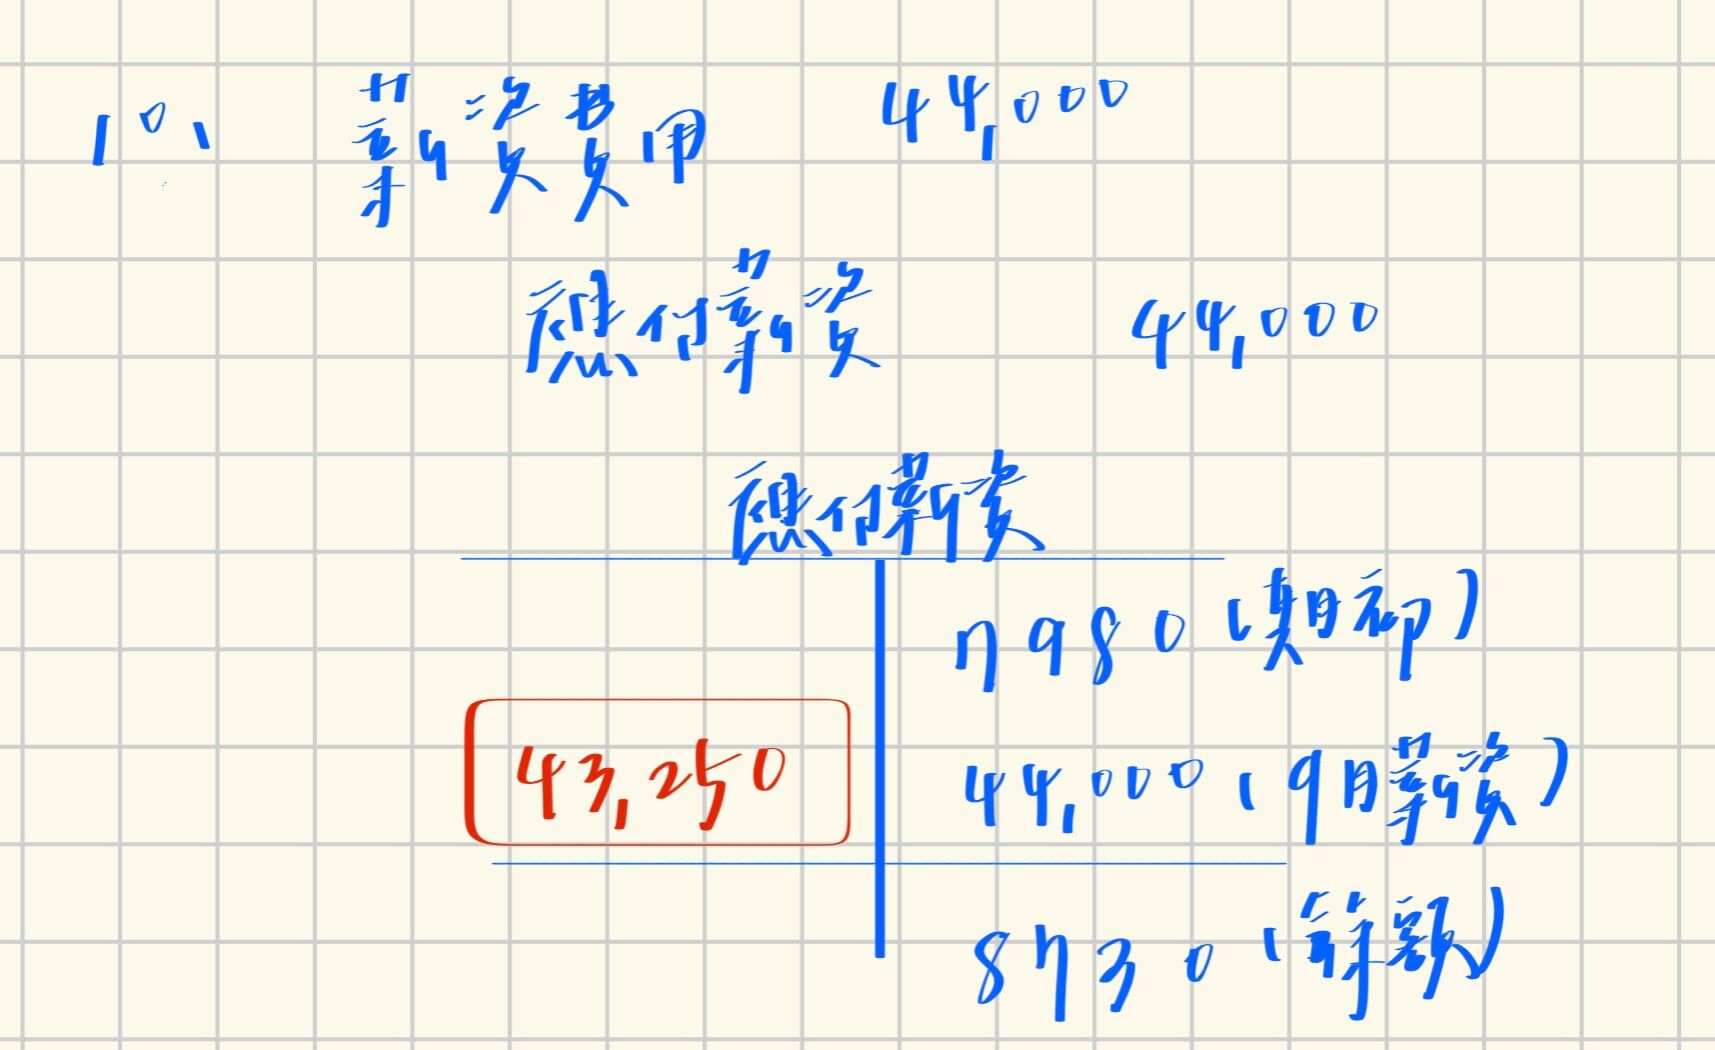 10、 薪資費用 44,000
應付薪資 44,000
應付薪資
7980 (期初)
43,250 44,000 (9月薪資)
8730 (餘額)